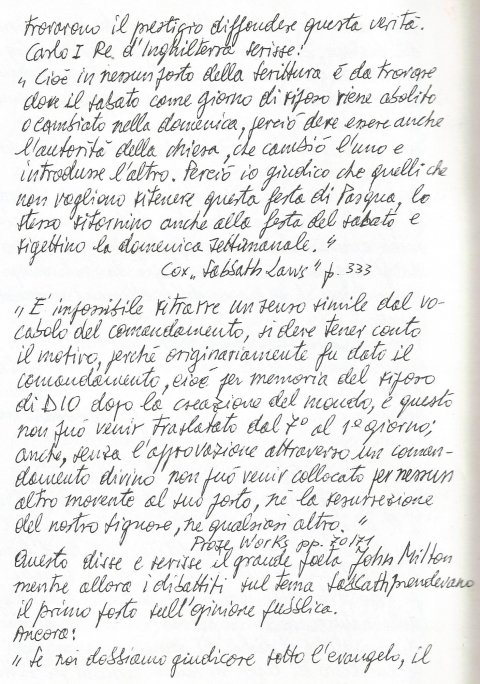 trovarono il prestigio diffondere questa verità.
Carlo I Re d'Inghilterra scrisse:
„ Cioè in nessun posto della Scrittura é da trovare
dove il sabato come giorno di riposo viene abolito
o cambiato nella domenica, perciò deve essere anche
l'autorità della chiesa, che cambiò l'uno e
introdusse l'altro. Perciò io giudico che quelli che
non vogliono ritenere questa festa di Pasqua, lo
stesso ritornino anche alla festa del sabato e
rigettino la domenica settimanale. "
Cox „ Sabbath Laws" p. 333
„ E' impossibile ritrarre un senso simile dal vo-
cabolo del comandamento, si deve tener conto
il motivo, perché originariamente fu dato il
comandamento, cioé per memoria del riposo
di DIO dopo la creazione del mondo, e questo
non può venir traslatato dal 7° al 1° giorno;
anche, senza l'approvazione attraverso un coman-
damento divino non può venir collocato per nessun
altro movente al suo posto, nè la resurrezione
del nostro signore, nè qualsiasi altro. "
Prose Works pp. 70/71
Questo disse e scrisse il grande poeta John Milton
mentre allora i dibattiti sul tema Sabbath prendevano
il primo posto sull'opinione pubblica.
Ancora:
„ Se noi dobbiamo giudicare sotto l'evangelo, il